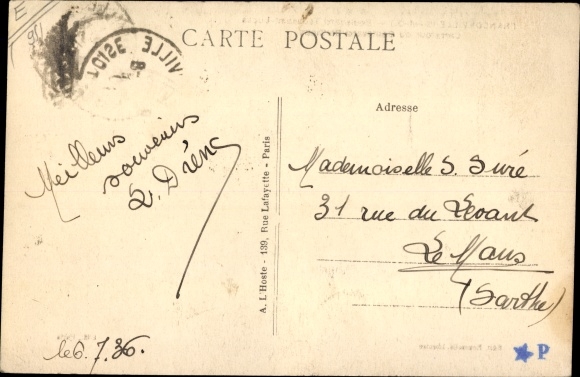 CARTE POSTALE
Meilleurs
souvenirs
le 6.7.36.
A. L'Hoste - 139, Rue Lafayette - Paris
Adresse
Mademoiselle S. Suré
31 rue du Levant
Le Mans
(Sarthe)
P